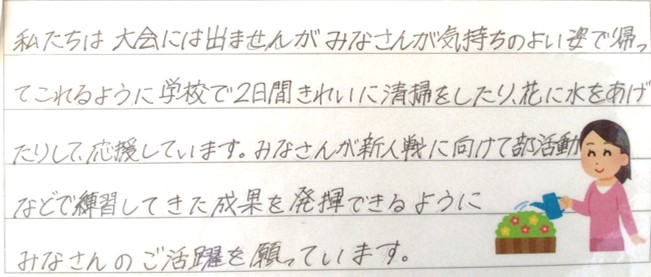 私たちは大会には出ませんがみなさんが気持ちのよい姿で帰っ
てこれるように学校で2日間きれいに清掃をしたり、花に水をあげ
たりして、応援しています。みなさんが新人戦に向けて部活動
などで練習してきた成果を発揮できるように
みなさんのご活躍を願っています。